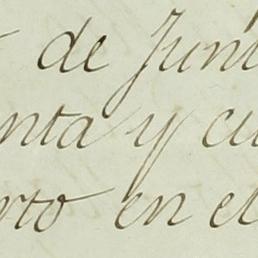 de Juni
nta y cu
rto en el